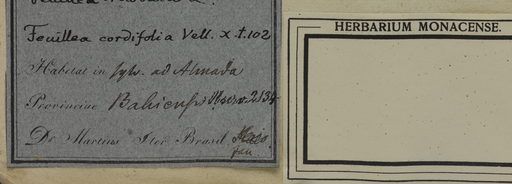 Feuillea cordifolia Vell. x. t. 102
Habitat in sylv. ad Almada
Provinciae Bahiensis Observ. 2134
Dr. Martius Iter Brasil.
HERBARIUM MONACENSE.